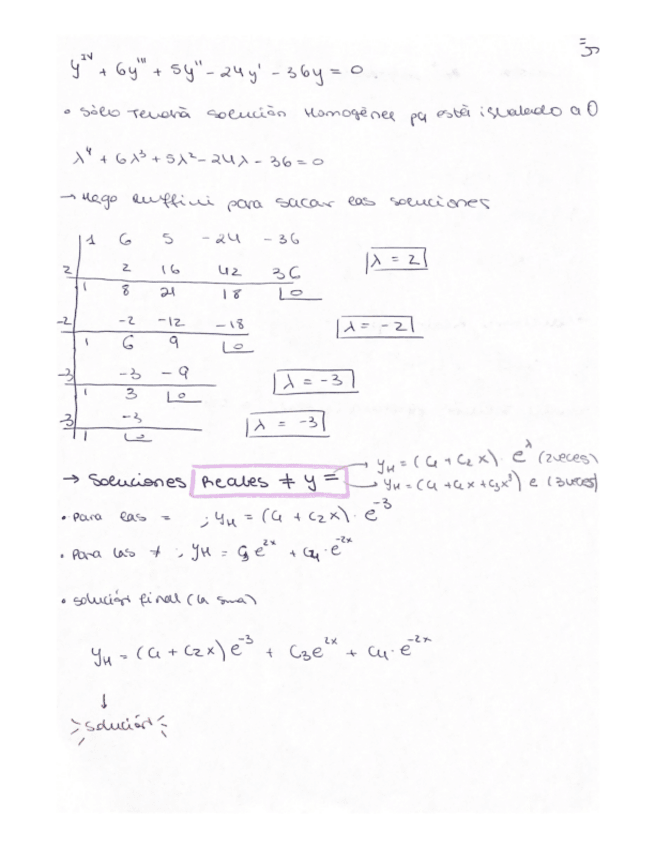 y^IV + 6y''' + 5y'' - 24y' - 36y = 0
• Sólo tendrá solución Homogénea pq está igualado a 0
λ⁴ + 6λ³ + 5λ² - 24λ - 36 = 0
→ Hago Ruffini para sacar las soluciones
1 6 5 -24 -36
2 2 16 42 36 λ = 2
1 8 21 18 0
-2 -2 -12 -18 λ = -2
1 6 9 0
-3 -3 -9 λ = -3
1 3 0
-3 -3 λ = -3
1 0
→ Soluciones Reales ≠ y =
→ y_H = (C₁ + C₂x) · e^λ (2 veces)
→ y_H = (C₁ + C₂x + C₃x²) e (3 veces)
• Para las = ; y_H = (C₁ + C₂x) · e^-3
• Para las ≠ ; y_H = C₃e^2x + C₄ · e^-2x
• solución final (la suma)
y_H = (C₁ + C₂x) e^-3 + C₃e^2x + C₄ · e^-2x
↓
Solución